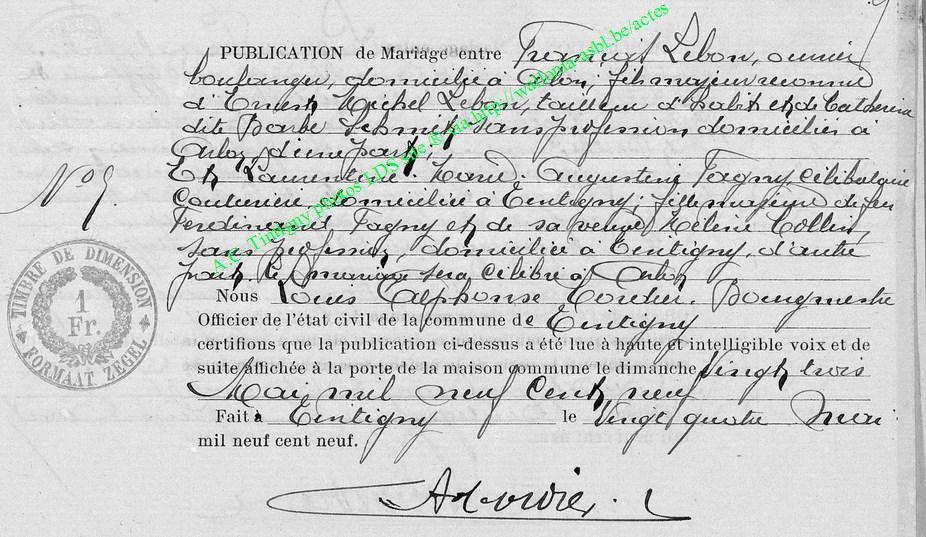 PUBLICATION de Mariage entre François Lebon, ouvrier
boulanger, domicilié à Arlon, fils majeur reconnu
d'Ernest Michel Lebon, tailleur d'habits et de Catherine
dite Barbe Schmit, sans profession domiciliés à
Arlon, d'une part;
Et Laurentine Marie Augustine Fagny, célibataire
couturière, domiciliée à Tintigny, fille majeure de feu
Ferdinand Fagny et de sa veuve Hélène Collin,
sans profession, domiciliée à Tintigny, d'autre
part. Le mariage sera célébré à Arlon
Nous Louis Alphonse Bourgmestre
Officier de l'état civil de la commune de Tintigny
certifions que la publication ci-dessus a été lue à haute et intelligible voix et de
suite affichée à la porte de la maison commune le dimanche vingt trois
Mai mil neuf cent neuf
Fait à Tintigny le vingt quatre mai
mil neuf cent neuf.
No 9.
TIMBRE DE DIMENSION
1
Fr.
FORMAAT ZEGEL
A.C. Tintigny photos LDS site @ via http://wallonia-asbl.be/actes